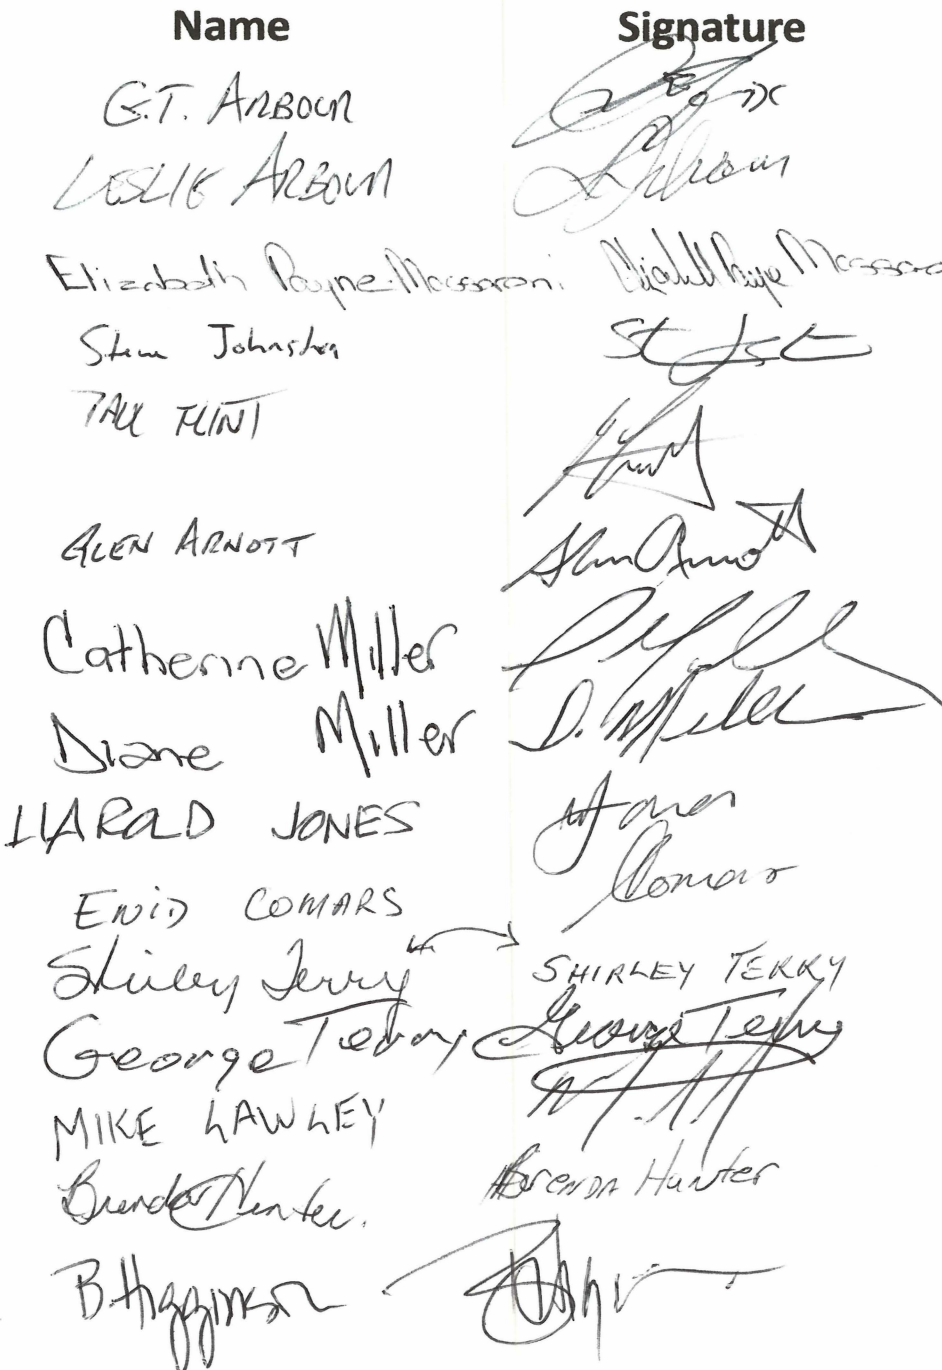 Name Signature
G.T. ARBOUR
LESLIE ARBOUR L Arbour
Elizabeth Payne-Massaroni Elizabeth Payne Massaro
Steve Johnston
PAUL FLINT
GLEN ARNOTT Glen Arnott
Catherine Miller
Diane Miller D. Miller
HAROLD JONES H Jones
ENID COMARS Comars
Shirley Terry SHIRLEY TERRY
George Terry George Terry
MIKE LAWLEY
Brenda Hunter. BRENDA Hunter
B. Higginson